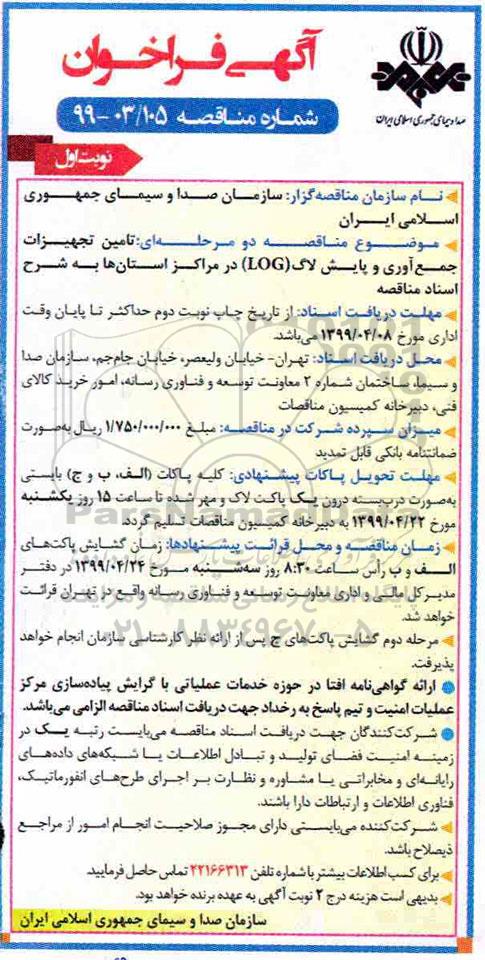 صدا و سیمای جمهوری اسلامی ایران
آگهی فراخوان
شماره مناقصه ۰۳/۱۰۵ -۹۹
نوبت اول
نام سازمان مناقصه‌گزار: سازمان صدا و سیمای جمهوری
اسلامی ایران
موضوع مناقصه دو مرحله‌ای: تامین تجهیزات
جمع‌آوری و پایش لاگ (LOG) در مراکز استان‌ها به شرح
اسناد مناقصه
مهلت دریافت اسناد: از تاریخ چاپ نوبت دوم حداکثر تا پایان وقت
اداری مورخ ۱۳۹۹/۰۴/۰۸ می‌باشد.
محل دریافت اسناد: تهران- خیابان ولیعصر، خیابان جام‌جم، سازمان صدا
و سیما، ساختمان شماره ۲ معاونت توسعه و فناوری رسانه، امور خرید کالای
فنی، دبیرخانه کمیسیون مناقصات
میزان سپرده شرکت در مناقصه: مبلغ ۱/۷۵۰/۰۰۰/۰۰۰ ریال به‌صورت
ضمانتنامه بانکی قابل تمدید
مهلت تحویل پاکات پیشنهادی: کلیه پاکات (الف، ب و ج) بایستی
به‌صورت دربسته درون یک پاکت لاک و مهر شده تا ساعت ۱۵ روز یکشنبه
مورخ ۱۳۹۹/۰۴/۲۲ به دبیرخانه کمیسیون مناقصات تسلیم گردد.
زمان مناقصه و محل قرائت پیشنهادها: زمان گشایش پاکت‌های
الف و ب رأس ساعت ۸:۳۰ روز سه‌شنبه مورخ ۱۳۹۹/۰۴/۲۴ در دفتر
مدیرکل مالی و اداری معاونت توسعه و فناوری رسانه واقع در تهران قرائت
خواهد شد.
مرحله دوم گشایش پاکت‌های ج پس از ارائه نظر کارشناسی سازمان انجام خواهد
پذیرفت.
ارائه گواهی‌نامه افتا در حوزه خدمات عملیاتی با گرایش پیاده‌سازی مرکز
عملیات امنیت و تیم پاسخ به رخداد جهت دریافت اسناد مناقصه الزامی می‌باشد.
شرکت‌کنندگان جهت دریافت اسناد مناقصه می‌بایست رتبه یک در
زمینه امنیت فضای تولید و تبادل اطلاعات یا شبکه‌های داده‌های
رایانه‌ای و مخابراتی یا مشاوره و نظارت بر اجرای طرح‌های انفورماتیک،
فناوری اطلاعات و ارتباطات دارا باشند.
شرکت‌کننده می‌بایستی دارای مجوز صلاحیت انجام امور از مراجع
ذیصلاح باشد.
برای کسب اطلاعات بیشتر با شماره تلفن ۲۲۱۶۶۳۱۳ تماس حاصل فرمایید.
بدیهی است هزینه درج ۲ نوبت آگهی به عهده برنده خواهد بود.
سازمان صدا و سیمای جمهوری اسلامی ایران
ParsNamadData
۰۲۱-۸۸۳۴۹۶۷۰-۵